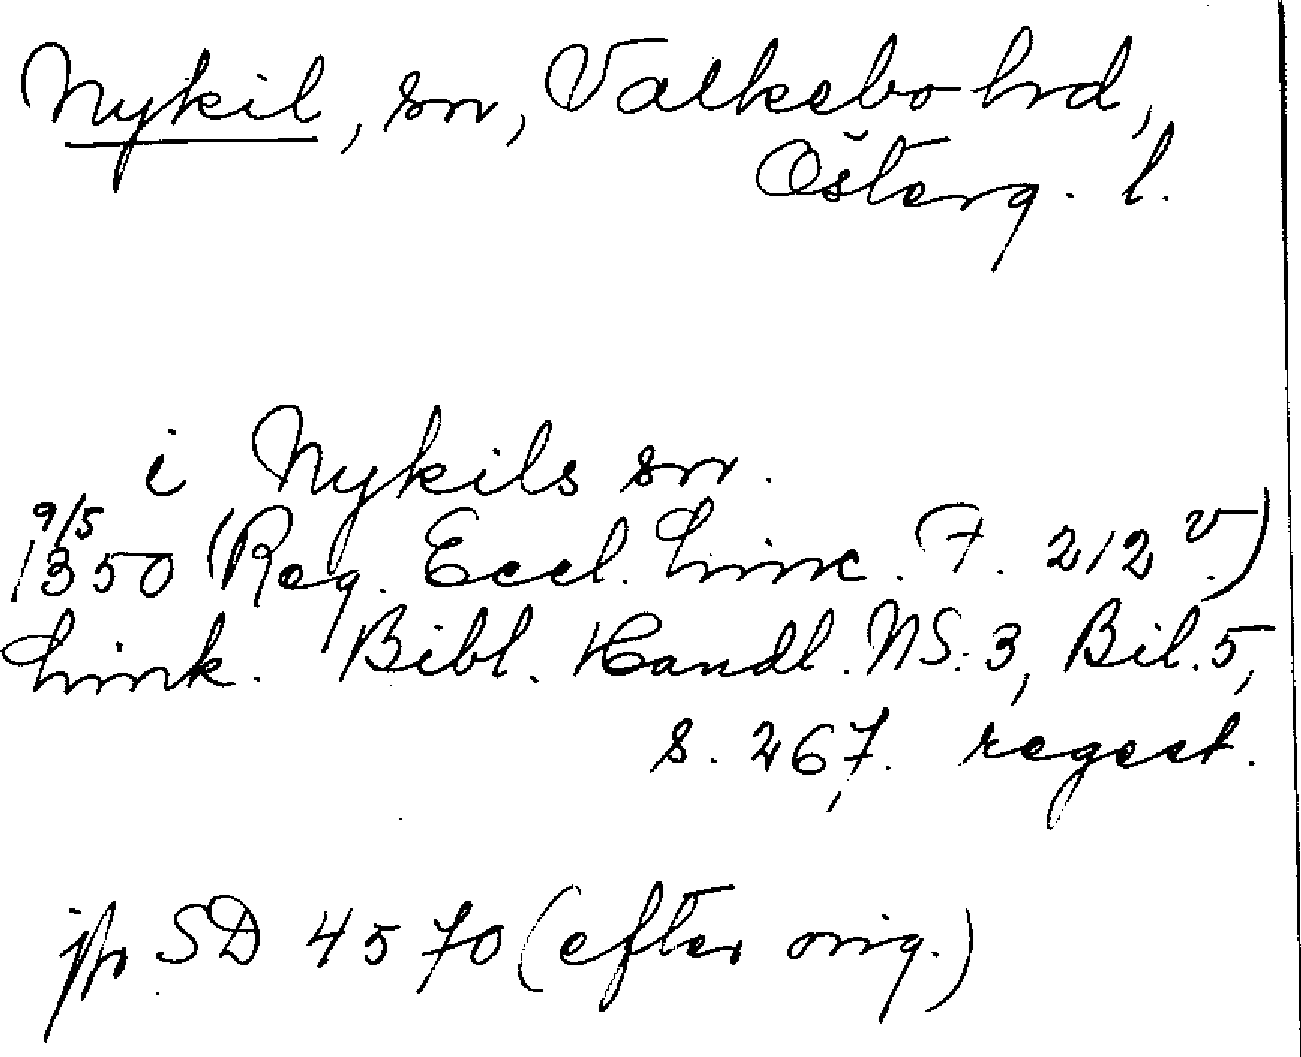 Nykil, sn, Valkebo hrd,
Österg. l.
i Nykils sn.
9/5
1350 (Reg. Eccl. Linc. F. 212 v.)
Link. Bibl. Handl. NS. 3, Bil. 5,
s. 267. regest.
jfr SD 4570 (efter orig.)